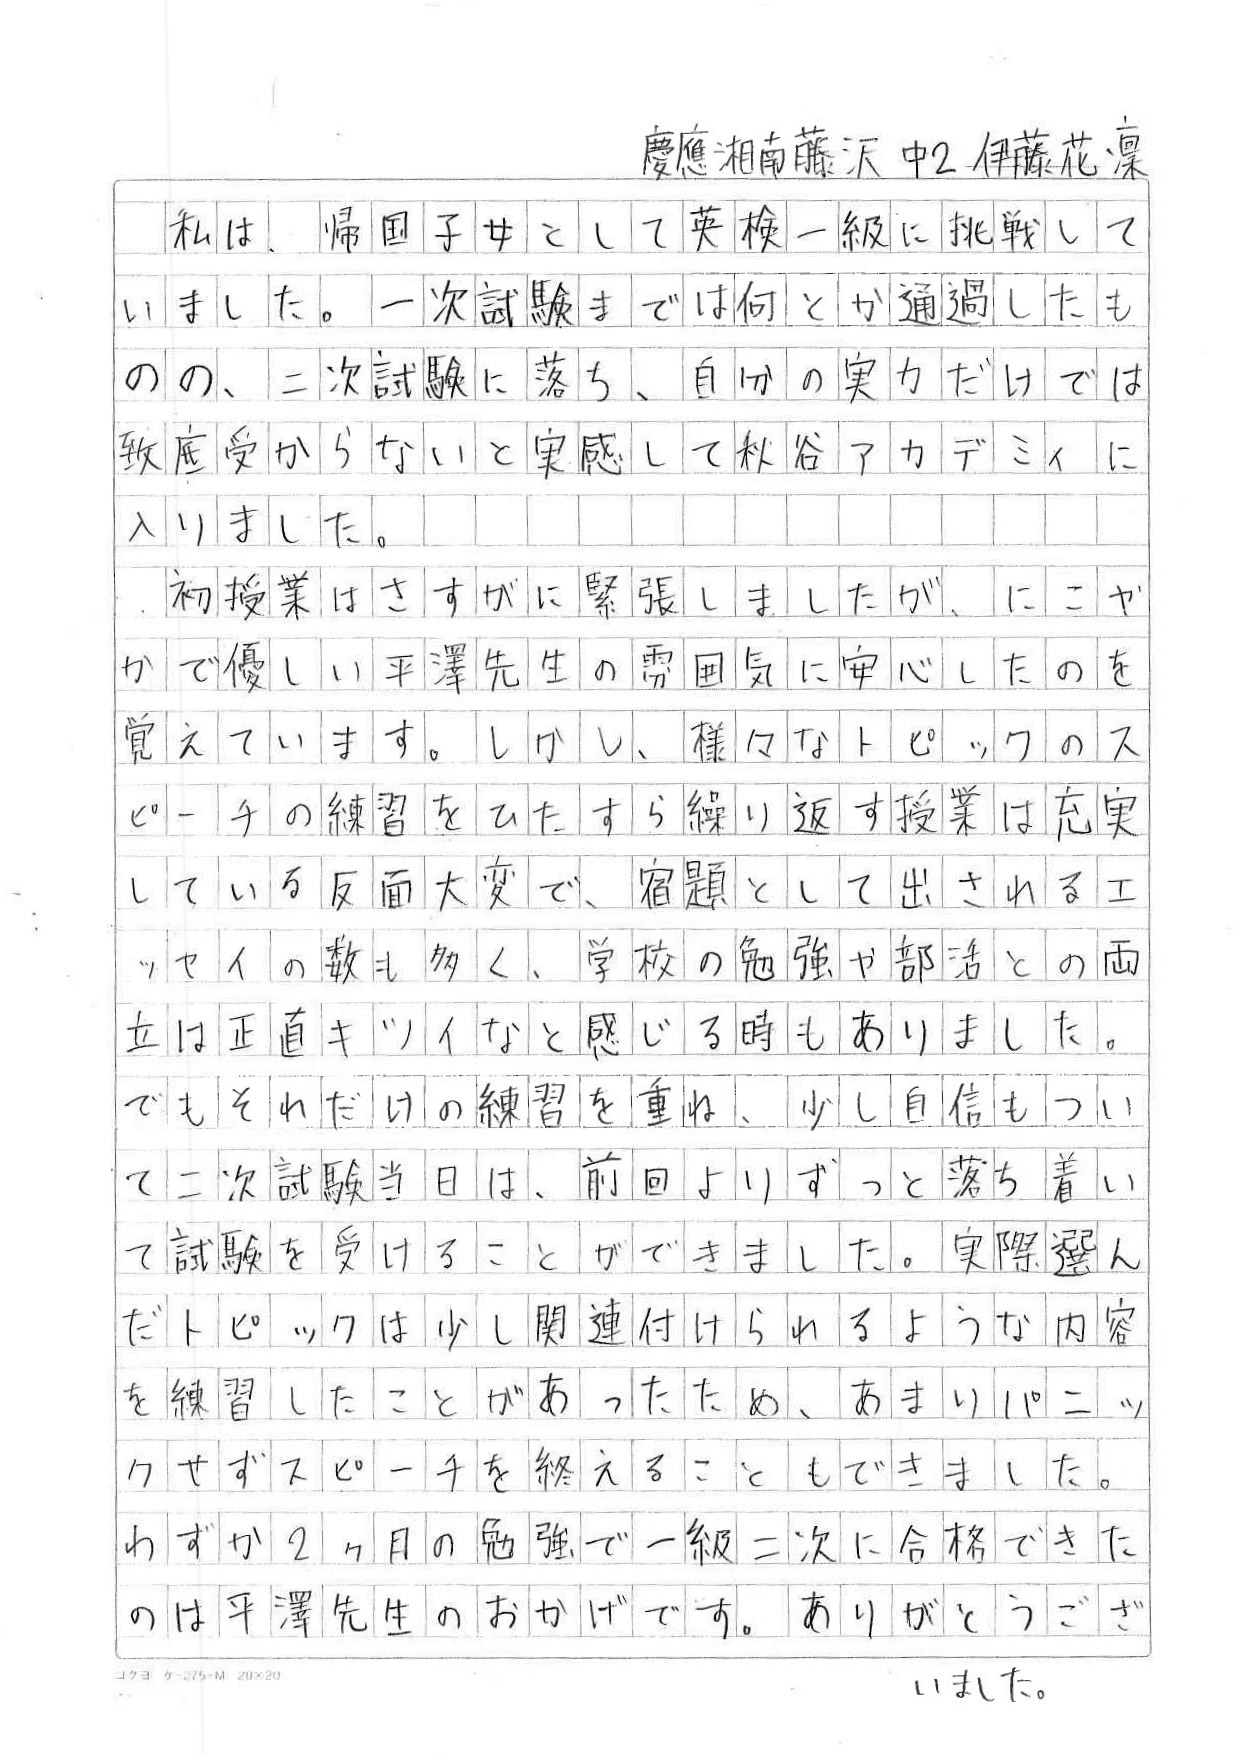 慶應湘南藤沢 中2 伊藤花凜
私は、帰国子女として英検一級に挑戦して
いました。一次試験までは何とか通過したも
のの、二次試験に落ち、自分の実力だけでは
致底受からないと実感して秋谷アカデミィに
入りました。
初授業はさすがに緊張しましたが、にこや
かで優しい平澤先生の雰囲気に安心したのを
覚えています。しかし、様々なトピックのス
ピーチの練習をひたすら繰り返す授業は充実
している反面大変で、宿題として出されるエ
ッセイの数も多く、学校の勉強や部活との両
立は正直キツイなと感じる時もありました。
でもそれだけの練習を重ね、少し自信もつい
て二次試験当日は、前回よりずっと落ち着い
て試験を受けることができました。実際選ん
だトピックは少し関連付けられるような内容
を練習したことがあったため、あまりパニッ
クせずスピーチを終えることもできました。
わずか2ヶ月の勉強で一級二次に合格できた
のは平澤先生のおかげです。ありがとうござ
いました。
コクヨ ケ-275-M 20×20